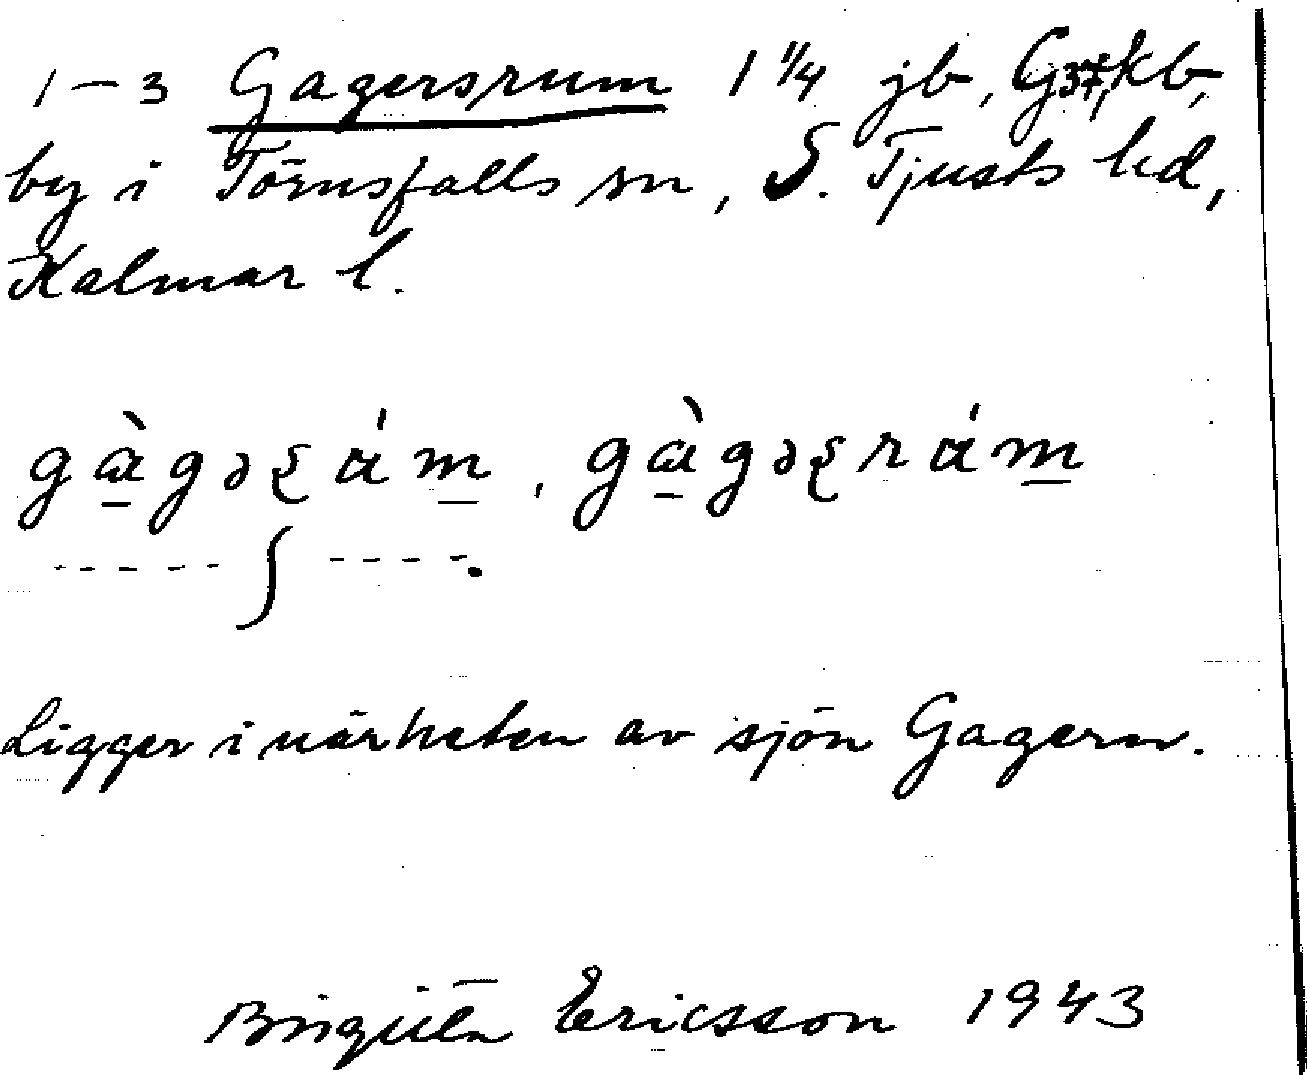 1-3 Gagersrum 1 1/4 jb, G37, kb,
by i Törnsfalls sn, S. Tjusts hd,
Kalmar l.
gàgəʂám, gàgəʂrám
-----ʃ----.
Ligger i närheten av sjön Gagern.
Birgitta Ericsson 1943